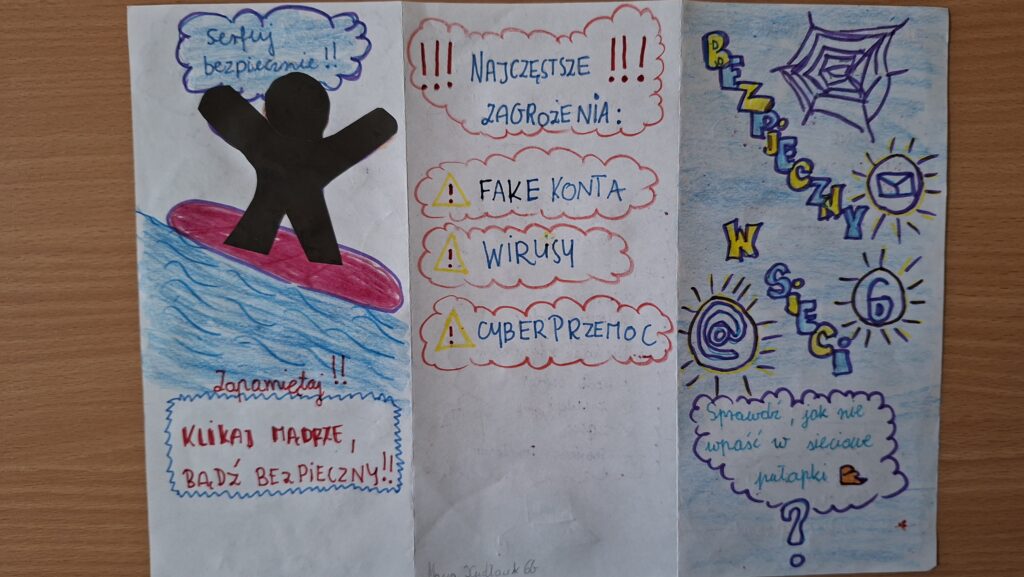 Serfuj
bezpiecznie!!
Zapamiętaj!!
KLIKAJ MĄDRZE,
BĄDŹ BEZPIECZNY!!
!!! NAJCZĘSTSZE !!!
ZAGROŻENIA:
! FAKE KONTA
! WIRUSY
! CYBERPRZEMOC
6B
BEZPIECZNY
W
SIECI
@
6
Sprawdź, jak nie
wpaść w sieciowe
pułapki
?